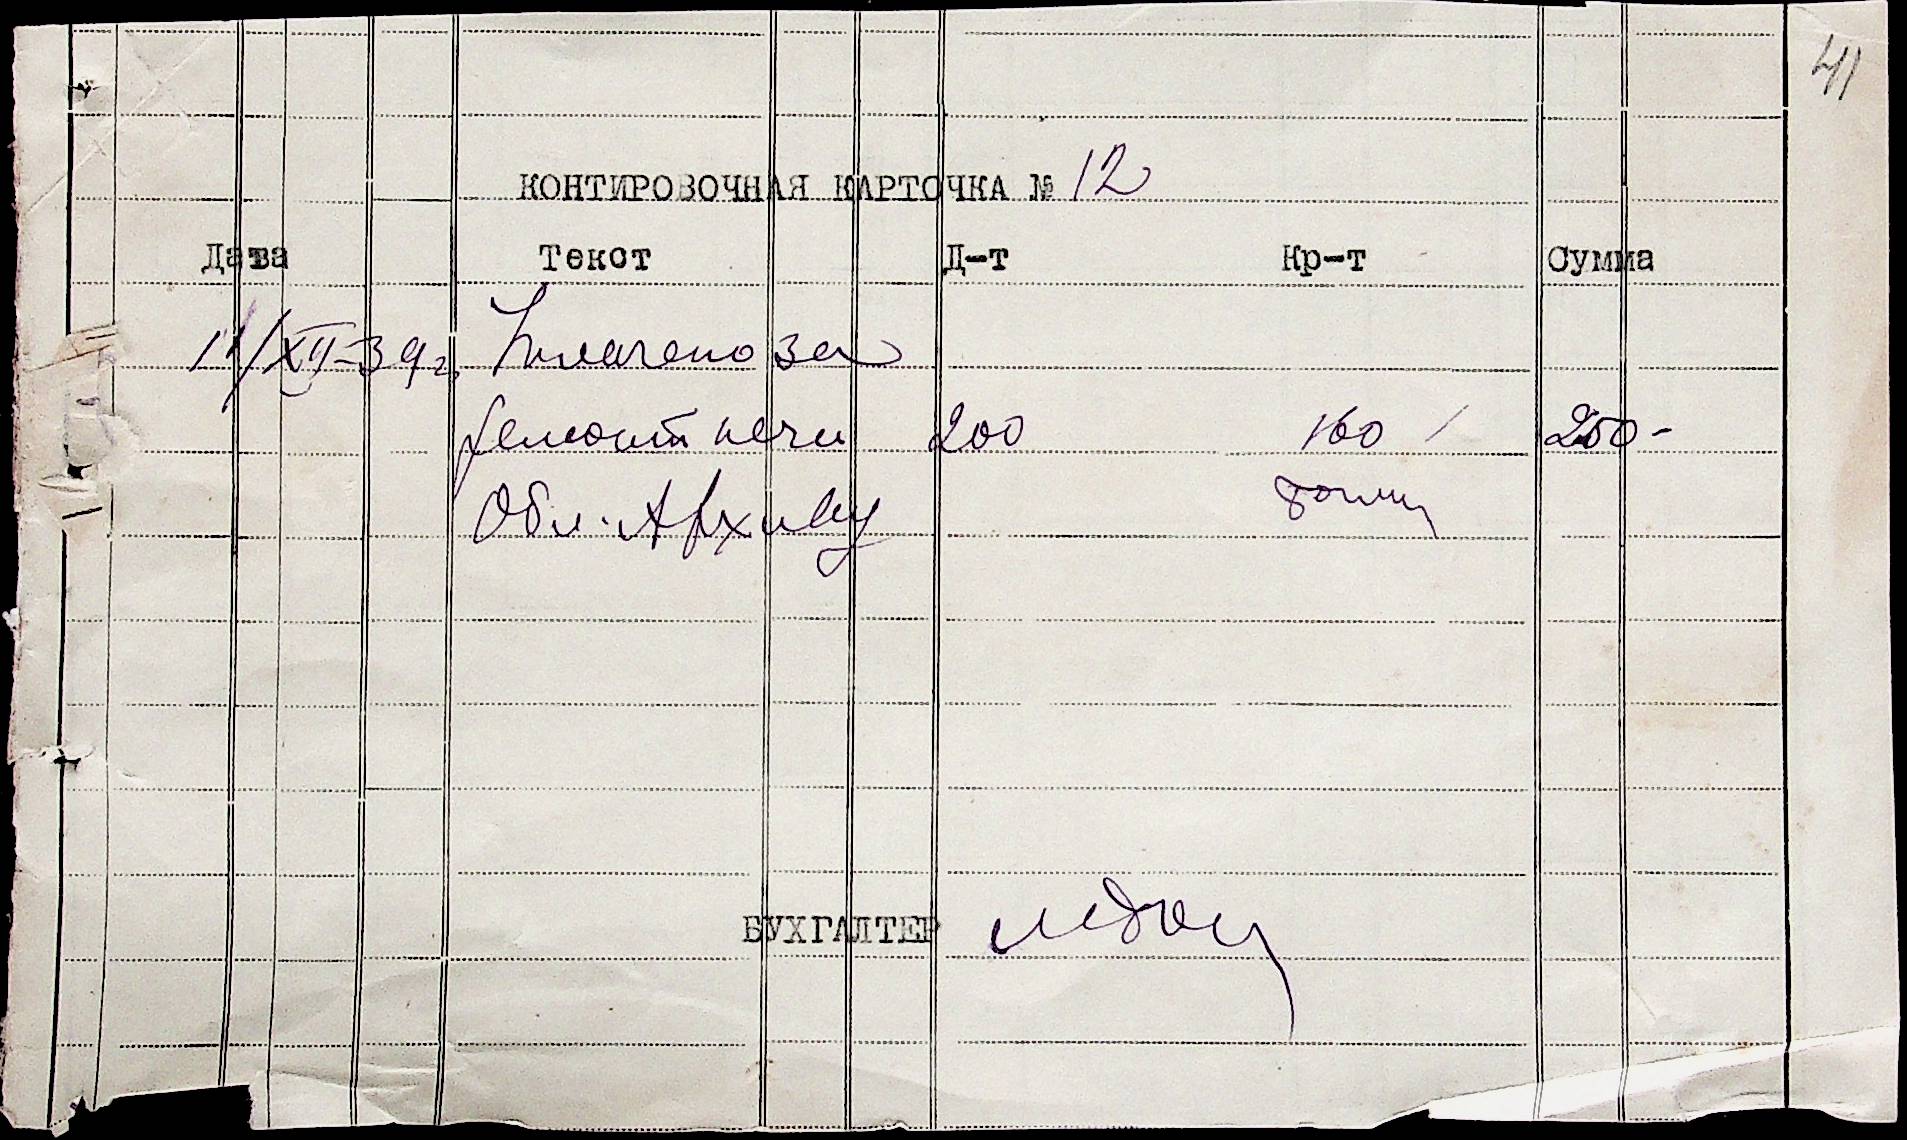 41
КОНТИРОВОЧНАЯ КАРТОЧКА № 12
Дата Текст Д-т Кр-т Сумма
11/XII-39 г. Уплачено за
ремонт печи 200 160 250-
Обл. Архиву
БУХГАЛТЕР